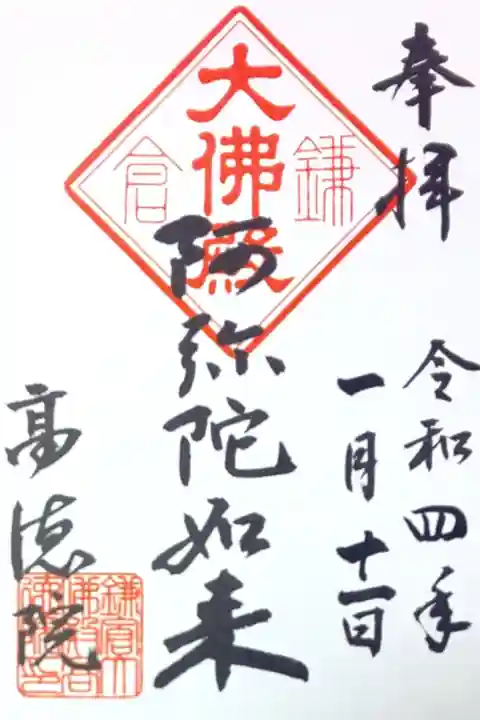 奉拝
令和四年
一月十一日
鎌倉
大佛殿
阿弥陀如来
高徳院